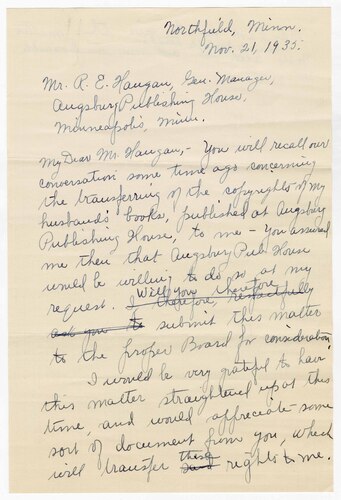 Northfield, Minn.
Nov. 21, 1935.
Mr. R. E. Haugan, Gen. Manager,
Augsburg Publishing House,
Minneapolis, Minn.
My Dear Mr. Haugan,- You will recall our
conversation some time ago concerning
the transferring of the copyrights of my
husband's books, published at Augsburg
Publishing House, to me - You assured
me then that Augsburg Pub. House
would be willing to do so at my
request. Will you therefore
I therefore, respectfully
ask you to submit this matter
to the proper Board for consideration.
I would be very grateful to have
this matter straightened up at this
time, and would appreciate some
sort of document from you, which
will transfer these rights to me.